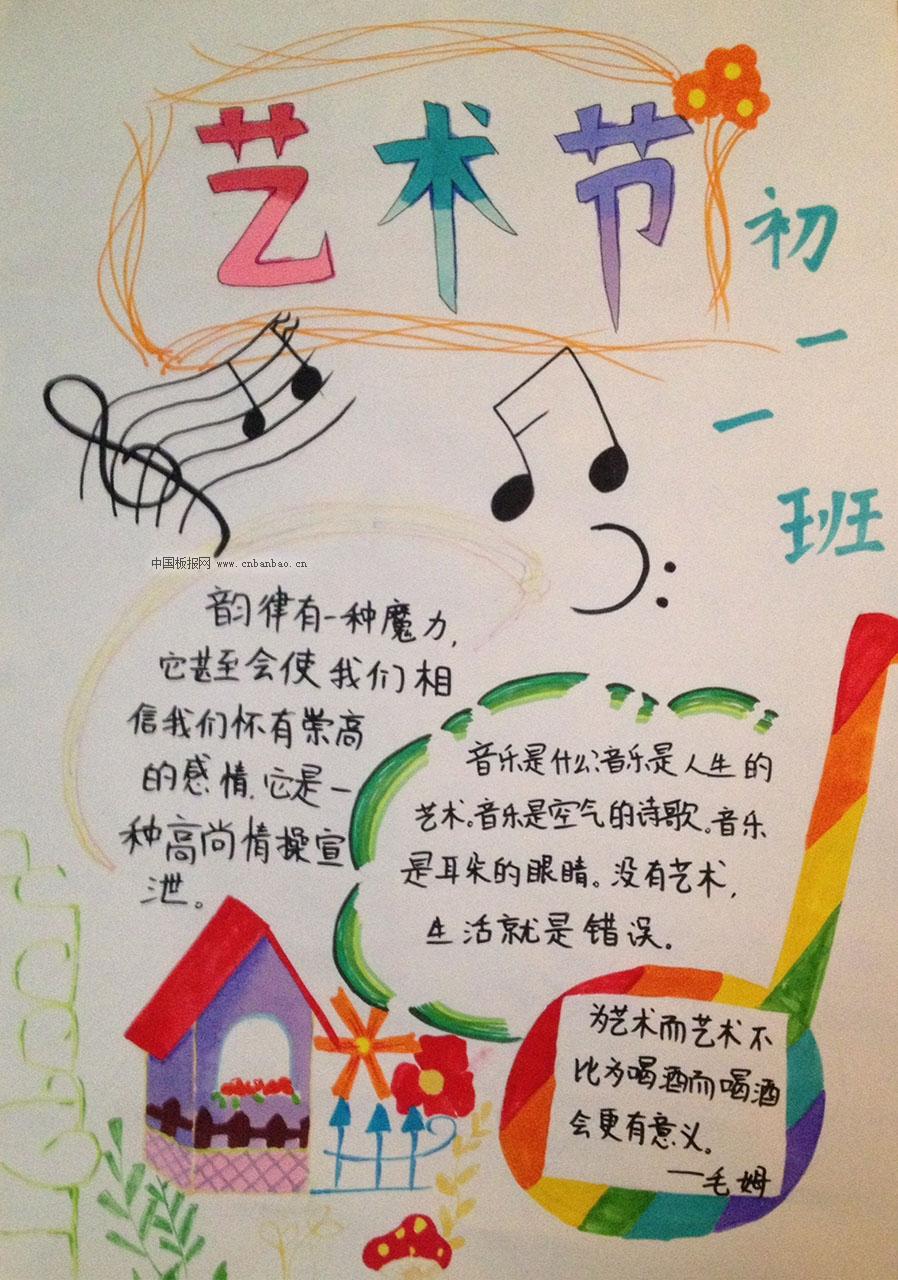 艺术节
初
一
一
班
中国板报网 www.cnbanbao.cn
韵律有一种魔力,
它甚至会使我们相
信我们怀有崇高
的感情.它是一
种高尚情操宣
泄。
音乐是什么?音乐是人生的
艺术。音乐是空气的诗歌。音乐
是耳朵的眼睛。没有艺术,
生活就是错误。
为艺术而艺术不
比为喝酒而喝酒
会更有意义。
——毛姆